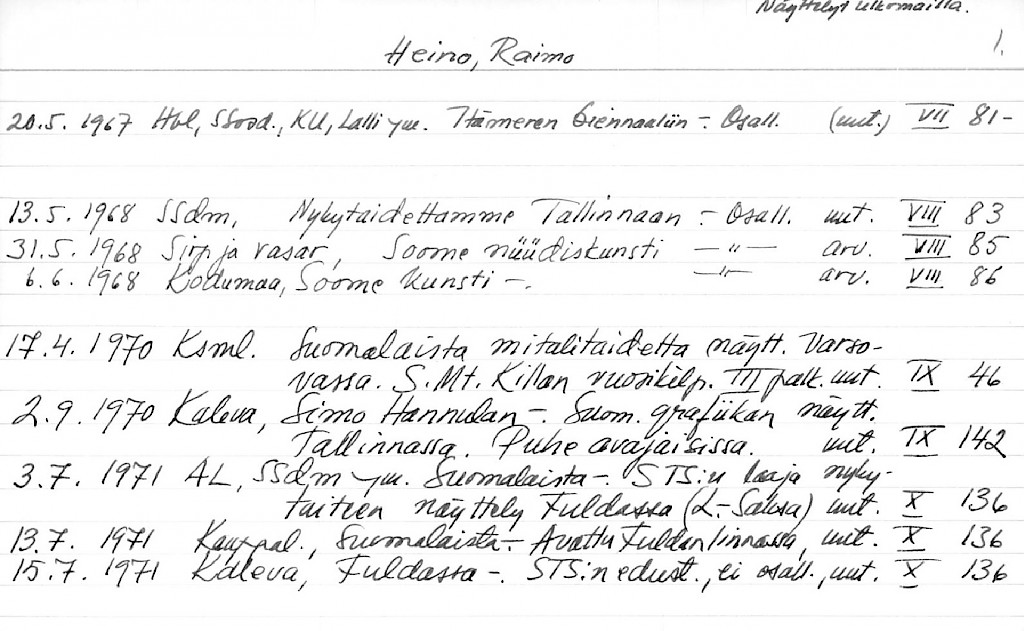 Näyttelyt ulkomailla.
1.
Heino, Raimo
20.5. 1967 Hbl, SSosd., KU, Lalli ym. Itämeren biennaaliin -. Osall. (uut.) VII 81-
13.5. 1968 SSdm, Nykytaidettamme Tallinnaan -. Osall. uut. VIII 83
31.5. 1968 Sirp ja vasar, Soome nüüdiskunsti — " — arv. VIII 85
6.6. 1968 Kodumaa, Soome kunsti -. — " — arv. VIII 86
17.4. 1970 Ksml. Suomalaista mitalitaidetta näytt. Varso-
vassa. S.Mt. Killan vuosikilp. III palk. uut. IX 46
2.9. 1970 Kaleva, Simo Hannulan -. Suom. grafiikan näytt.
Tallinnassa. Puhe avajaisissa. uut. IX 142
3.7. 1971 AL, SSdm ym. Suomalaista -. STS:n laaja nyky-
taiteen näyttely Fuldassa (L.-Saksa) uut. X 136
13.7. 1971 Kauppal., Suomalaista -. Avattu Fuldan linnassa, uut. X 136
15.7. 1971 Kaleva, Fuldassa -. STS:n edust., ei osall., uut. X 136